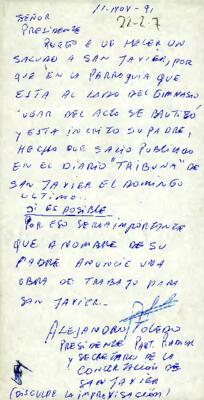 11-NOV-91
SEÑOR
PRESIDENTE
22-2-7
RUEGO A UD HACER UN
SALUDO A SAN JAVIER, POR
QUE EN LA PARROQUIA QUE
ESTA AL LADO DEL GIMNASIO
LUGAR DEL ACTO SE BAUTIZÓ
Y ESTA INCRITO SU PADRE,
HECHO QUE SALIO PUBLICADO
EN EL DIARIO "TRIBUNA" DE
SAN JAVIER EL DOMINGO
ULTIMO..
SI ES POSIBLE
POR ESO SERA IMPORTANTE
QUE A NOMBRE DE SU
PADRE ANUNCIE UNA
OBRA DE TRABAJO PARA
SAN JAVIER.-
ALEJANDRO TOLEDO
PRESIDENTE PART.
Y SECRETARIO DE LA
CONCERTACION DE
SAN JAVIER
(DISCULPE LA IMPROVISACIÓN)